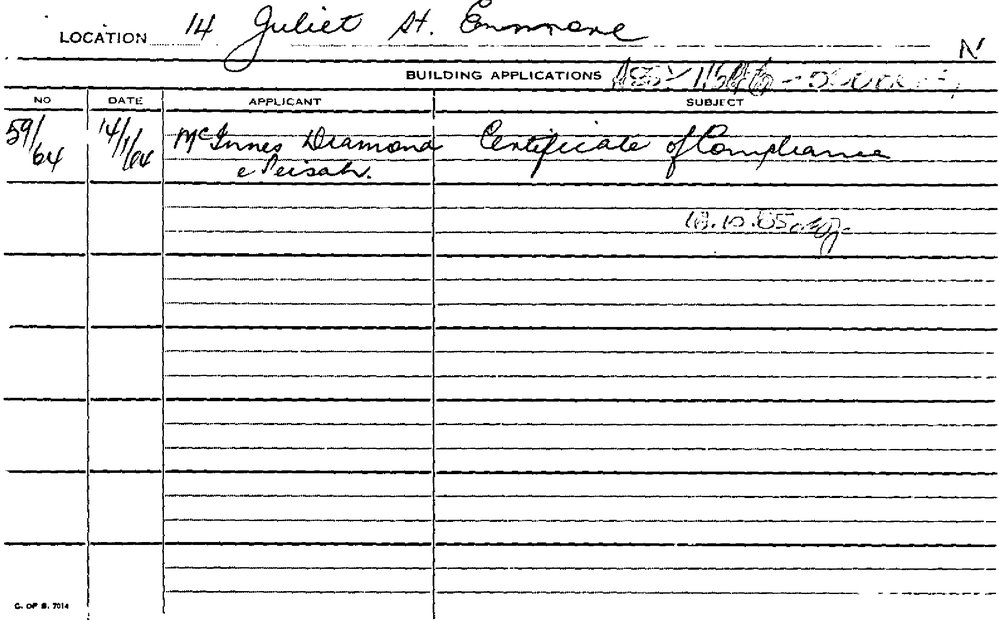 LOCATION 14 Juliet St. Enmore
N
BUILDING APPLICATIONS
NO DATE APPLICANT SUBJECT
59/64 14/1/64 McInnes Diamond Certificate of Compliance
e Peisah.
18.10.85
C. OF S. 7014